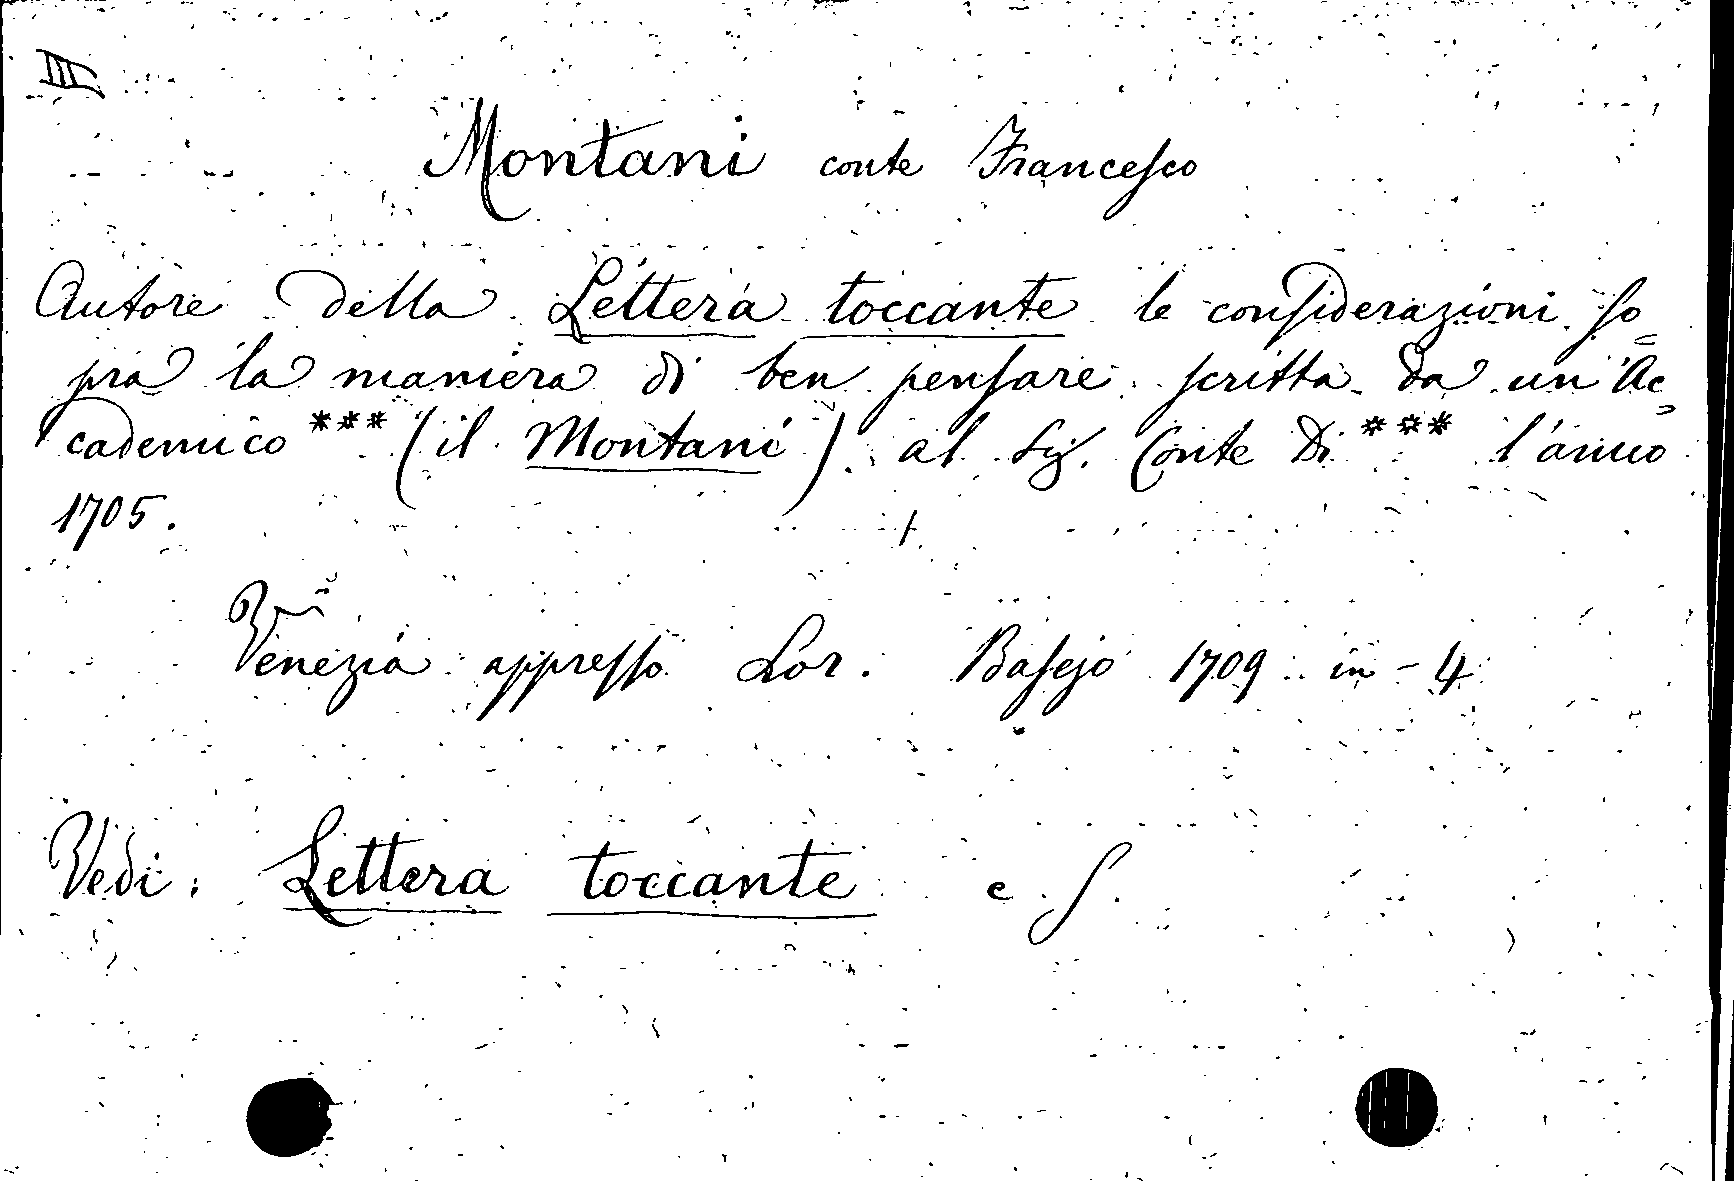 III
Montani conte Francesco
Autore della Lettera toccante le considerazioni so=
pra la maniera di ben pensare scritta da un'Ac=
cademico *** (il Montani) al Sig. Conte Di *** l'anno
1705.
Venezia appresso Lor. Basejo 1709 in-4
Vedi: Lettera toccante e S.